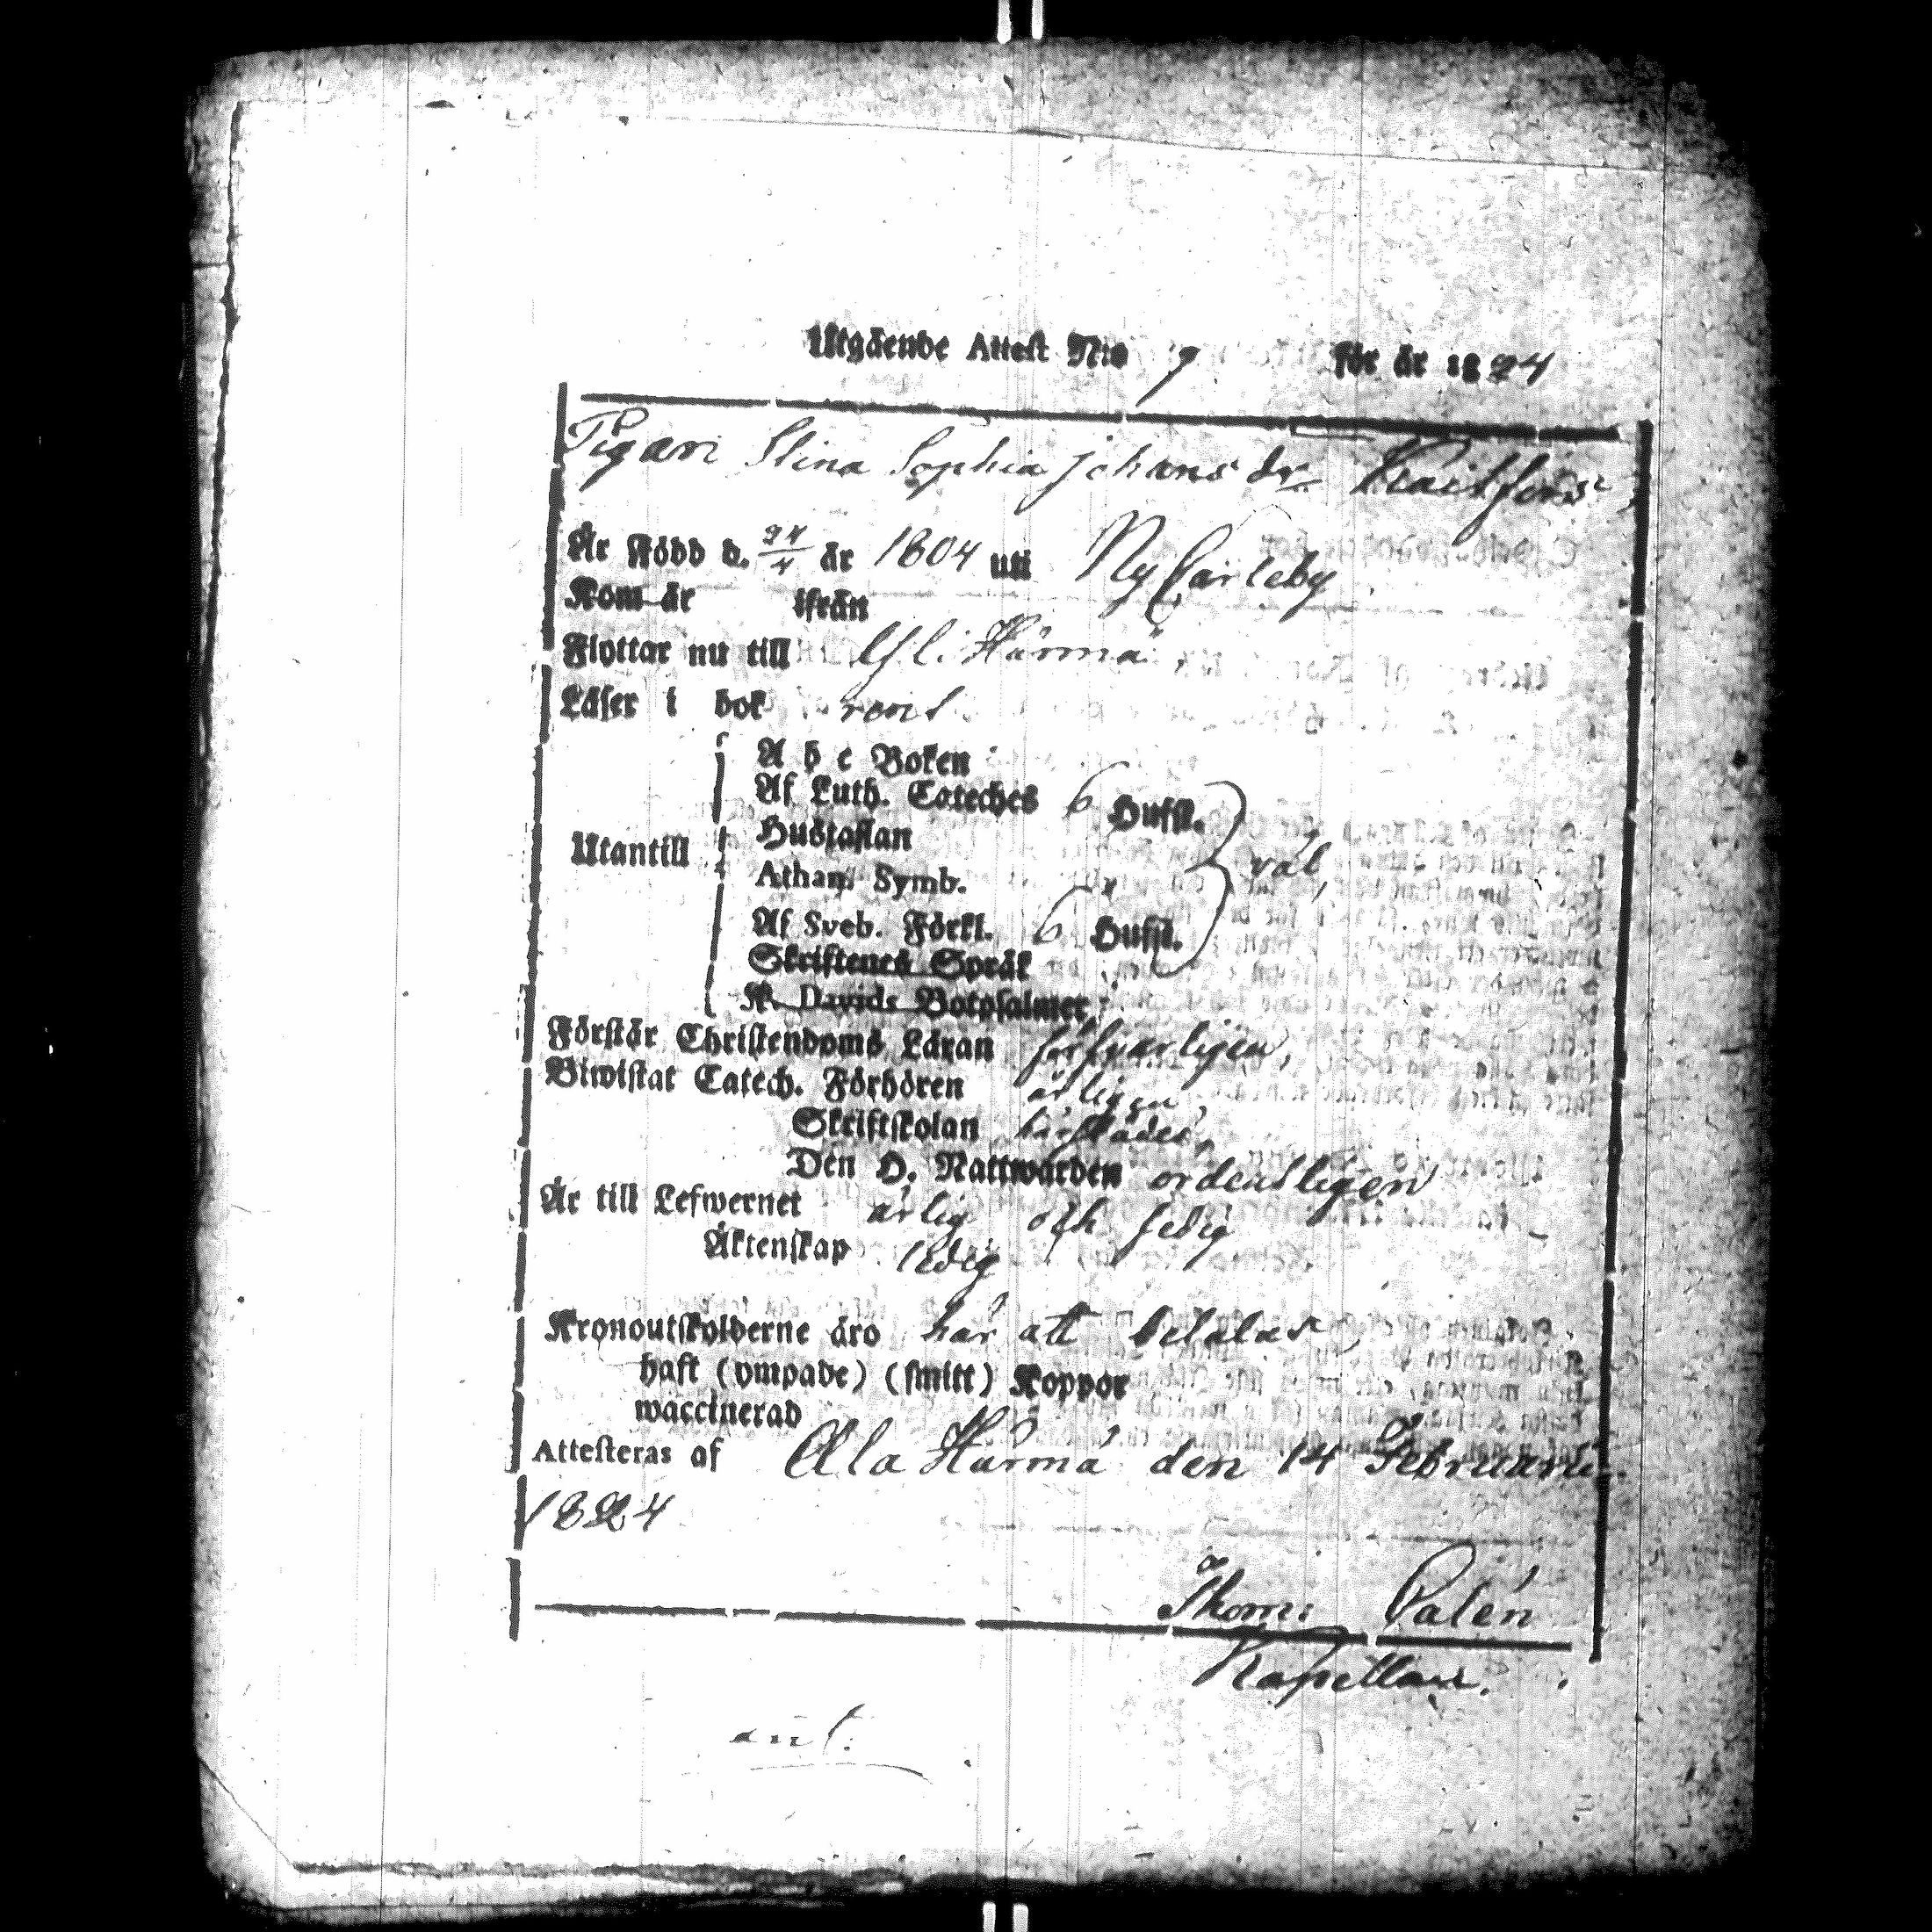 Utgående Attest N:o 9 för år 1824
Pigan Stina Sophia Johans dr
Är Född d. 24/4 år 1804 uti Ny Carleby
Kom år ifrån
Flyttar nu till Yli Härmä
Läser i bok rent
A b c Boken
Af Luth. Cateches 6 Hufst.
Hustaflan
Utantill väl,
Athan. Symb.
Af Sveb. Förkl. 6 Hufst.
Skriftenes Språk
K. Davids Botpsalmer
Förstår Christendoms Läran försvarligen,
Biwistat Catech. Förhören årligen,
Skriftskolan härstädes,
Den H. Nattwarden ordentligen
Är till Lefwernet ärlig och sedig
Äktenskap ledig
Kronoutskylderne äro här att betalas
haft (ympade) (smitt) Koppor
waccinerad
Attesteras af Ala Härmä den 14 Februarii
1824
Thom: Calén
Kapellan.
ant.